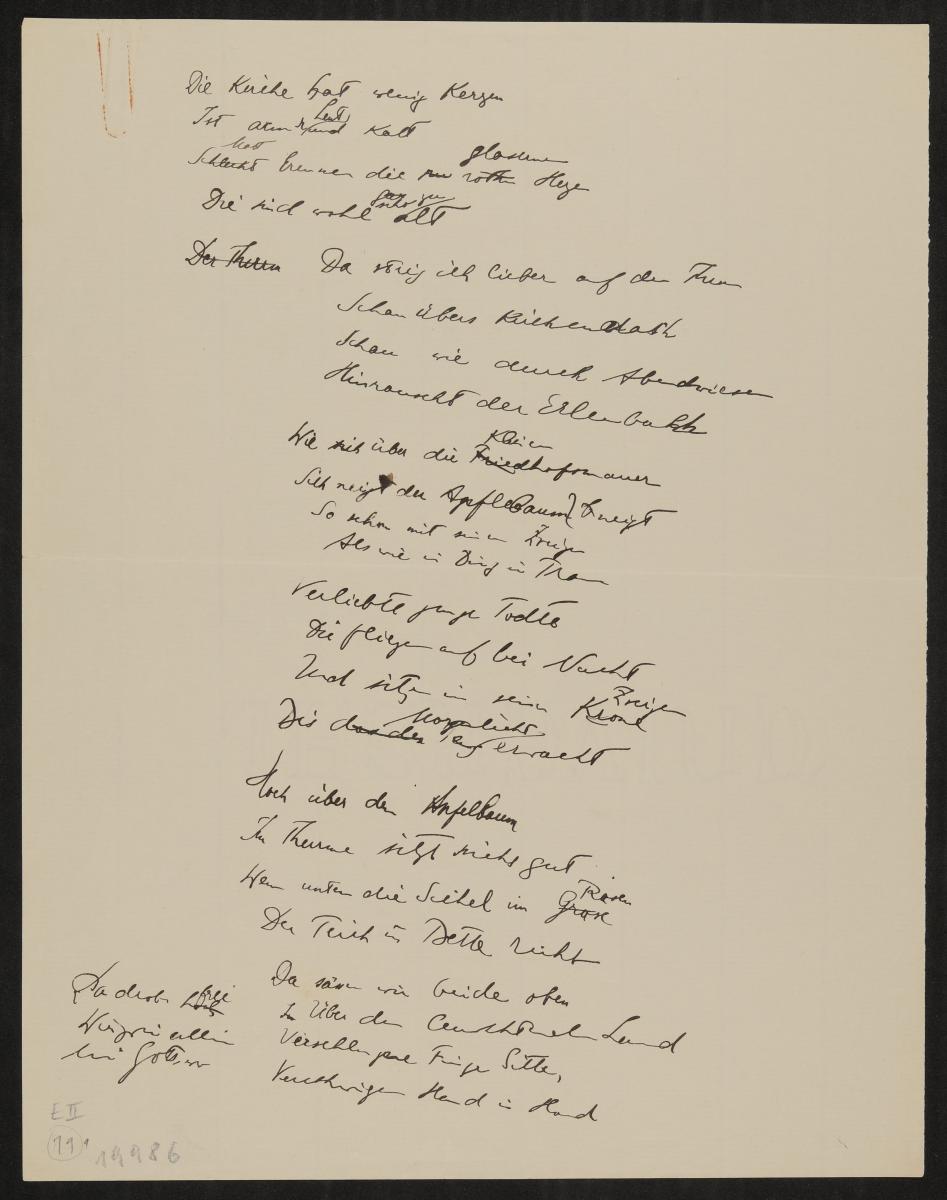 Die Kirche hat wenig Kerzen
Ist arm und Leut kalt
Schlecht brennen die rothen Herzen
gläserne
Die sind wohl alt
Der Thurm Da steig ich lieber auf den Thurm
Schau übers Kirchendach
Schau wie durch Abendwiesen
Hinrauscht der Erlenbach
Kleine
Wie sich über die Friedhofsmauer
Sich neigt der Apfelbaum
So schön mit seinen Zweigen
Als wie ein Ding in Traum
Verliebte junge Todte
Die fliegen auf bei Nacht
Zweigen
Und sitzen in seiner Krone
Morgenlicht
Bis erwacht
Hoch über dem Apfelbaum
Im Thurme sitzt sichs gut
Rasen
Wenn unten die Sichel im Grase
Der Teich im Bette ruht
Da säßen wir beide oben
Über dem Land
Finger
Verschwiegen Hand in Hand
Da droben
Wir zwei allein